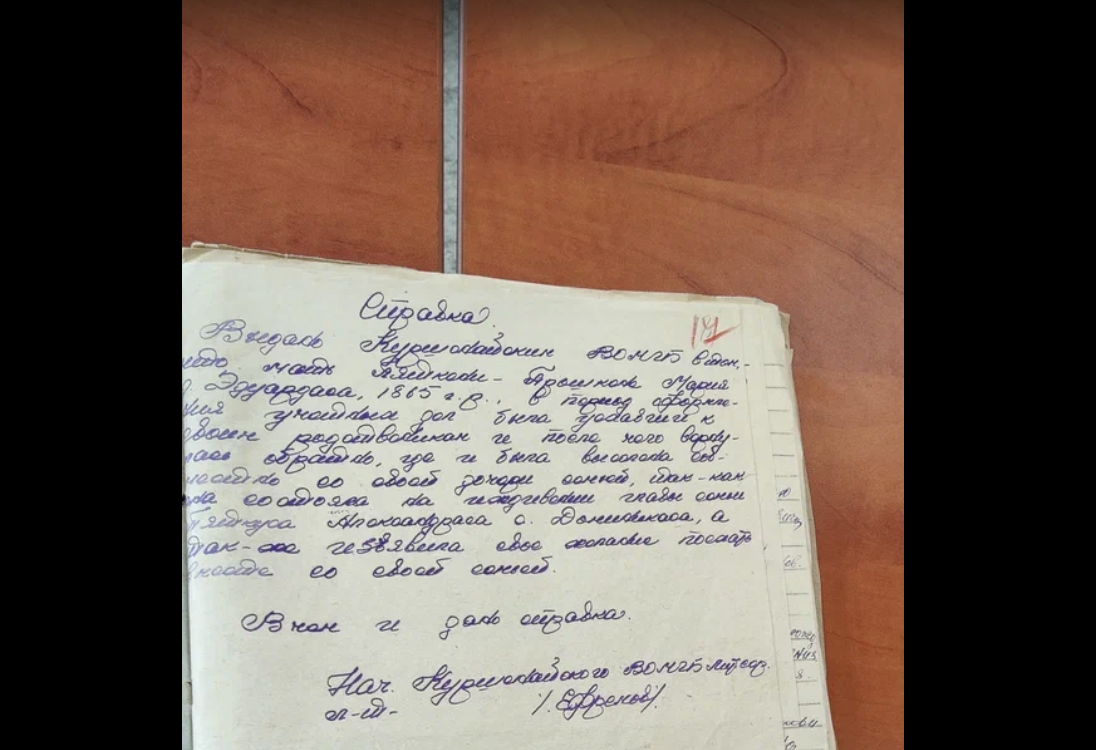 Справка.
181
Выдана Куршенайским РОМГБ в том,
что мать Пяткене - Мария
Эдуардаса, 1865 г.р., в период оформле-
ния учетных дел была уехавши к
своим родственикам и после чего верну-
лась обратно, где и была выселена сов-
местно со своей дочери семьей, так-как
она состояла на иждивении главы семьи
Пяткуса Александраса с. Доминикаса, а
так-же изъявила свое желание поехать
вместе со своей семьей.
В чем и дана справка.
Нач. Куршенайского РОМГБ Лит.ССР.
л-т- /Ефремов/.